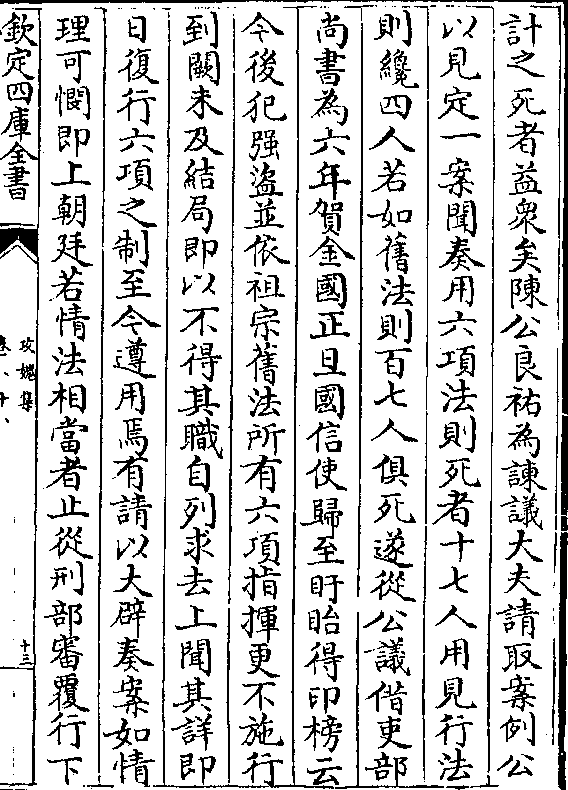 計之死者益衆矣陳公良祐為諫議大夫請取案例公
以見定一案聞奏用六項法則死者十七人用見行法
則纔四人若如舊法則百七人俱死遂從公議借吏部
尚書為六年賀金國正旦國信使歸至盱眙得印榜云
今後犯强盜並依祖宗舊法所有六項指揮更不施行
到闕未及結局即以不得其職自列求去上聞其詳即
日復行六項之制至今遵用焉有請以大辟奏案如情
理可憫即上朝廷若情法相當者止從刑部審覆行下
欽定四庫全書
攻媿集
十三